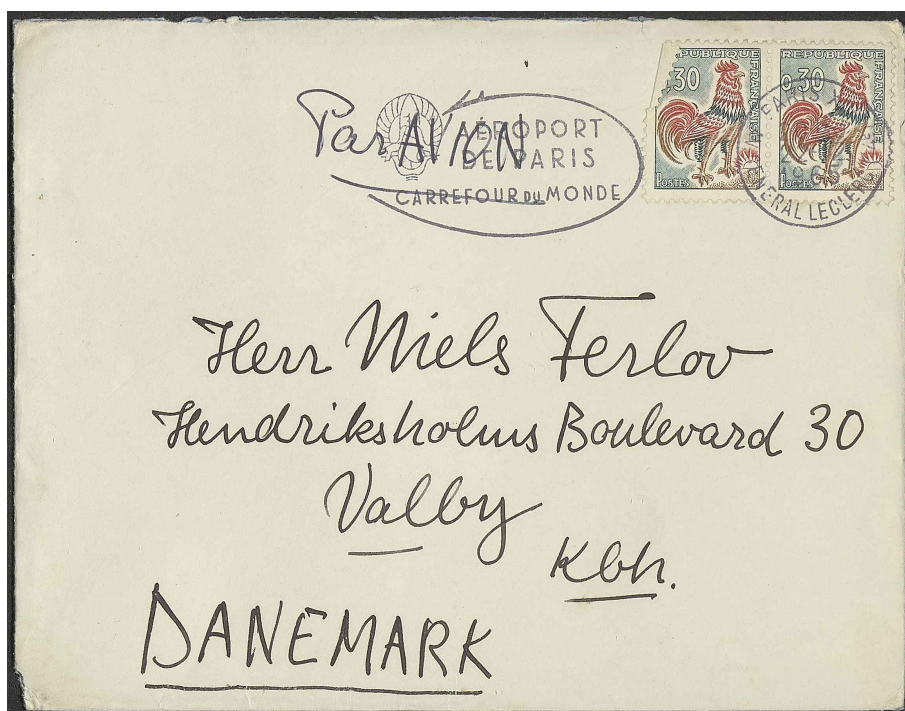 Par AVION
AÉROPORT
DE PARIS
CARREFOUR DU MONDE
RÉPUBLIQUE FRANÇAISE
0,30
POSTES
RÉPUBLIQUE FRANÇAISE
0,30
POSTES
PARIS
GENERAL LECLERC
Herr Niels Ferlov
Hendriksholms Boulevard 30
Valby
Kbh.
DANEMARK